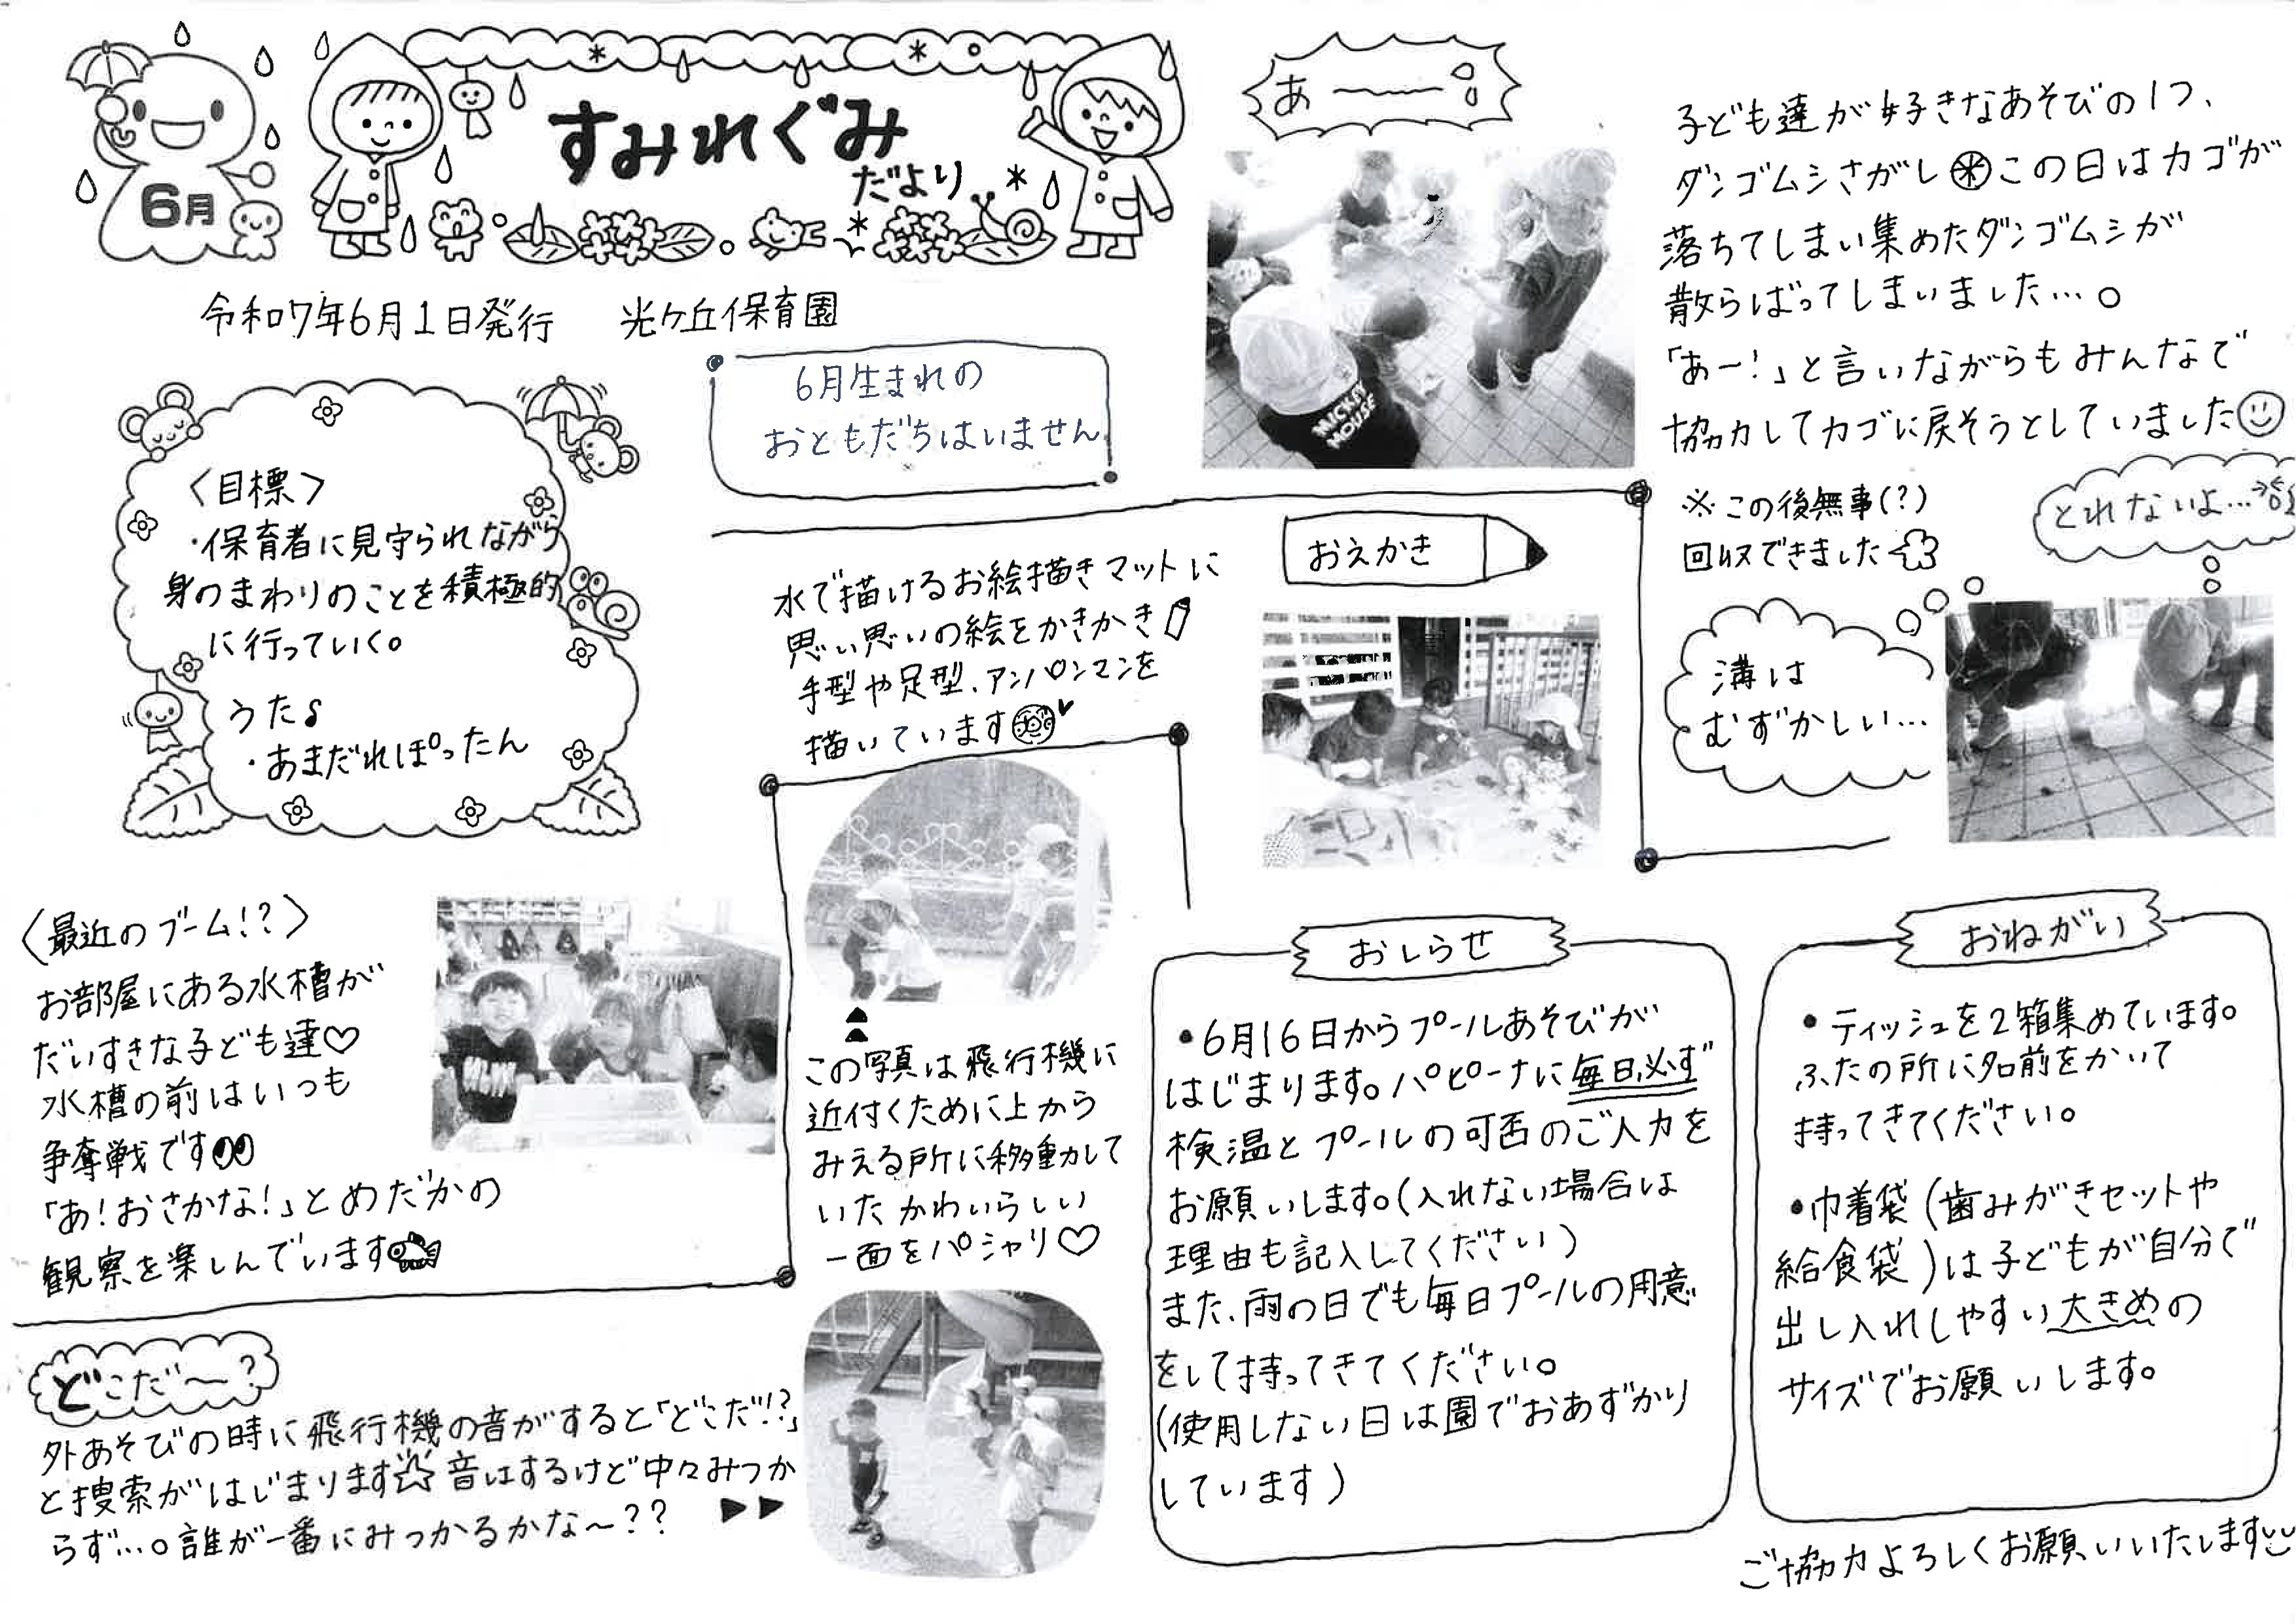 6月
すみれぐみ
だより
令和7年6月1日発行 光ケ丘保育園
6月生まれの
おともだちはいません
〈目標〉
・保育者に見守られながら
身のまわりのことを積極的
に行っていく。
うた♪
・あまだれぽったん
あ〜〜
MICKEY
MOUSE
子ども達が好きなあそびの1つ、
ダンゴムシさがし この日はカゴが
落ちてしまい集めたダンゴムシが
散らばってしまいました…。
「あー!」と言いながらもみんなで
協力してカゴに戻そうとしていました
※この後無事(?)
回収できました
とれないよ…
溝は
むずかしい…
おえかき
水で描けるお絵描きマットに
思い思いの絵をかきかき
手型や足型、アンパンマンを
描いています
〈最近のブーム!?〉
お部屋にある水槽が
だいすきな子ども達♡
水槽の前はいつも
争奪戦です
「あ!おさかな!」とめだかの
観察を楽しんでいます
どこだ〜?
外あそびの時に飛行機の音がすると「どこだ!?」
と捜索がはじまります☆音はするけど中々みつか
らず…。誰が一番にみつかるかな〜?? ▶▶
この写真は飛行機に
近付くために上から
みえる所に移動して
いたかわいらしい
一面をパシャリ♡
おしらせ
・6月16日からプールあそびが
はじまります。パピーナに毎日必ず
検温とプールの可否のご入力を
お願いします。(入れない場合は
理由も記入してください)
また、雨の日でも毎日プールの用意
をして持ってきてください。
(使用しない日は園でおあずかり
しています)
おねがい
・ティッシュを2箱集めています。
ふたの所に名前をかいて
持ってきてください。
・巾着袋(歯みがきセットや
給食袋)は子どもが自分で
出し入れしやすい大きめの
サイズでお願いします。
ご協力よろしくお願いいたします